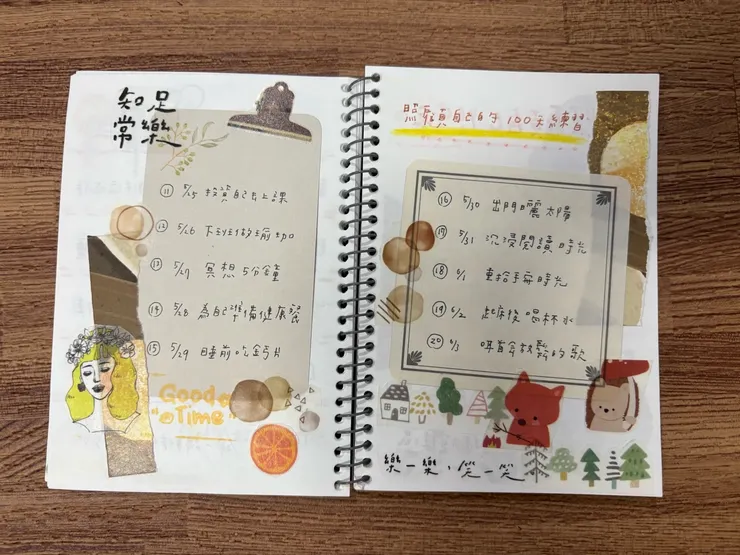 知足
常樂
⑪ 5/25 投資自己上課
⑫ 5/26 下班做瑜珈
⑬ 5/27 冥想5分鐘
⑭ 5/28 為自己準備健康餐
⑮ 5/29 睡前吃鈣片
Good
"Time"
照顧自己的100天練習
⑯ 5/30 出門曬太陽
⑰ 5/31 沉浸閱讀時光
⑱ 6/1 重拾手帳時光
⑲ 6/2 起床後喝杯水
⑳ 6/3 聽首放鬆的歌
樂一樂,笑一笑